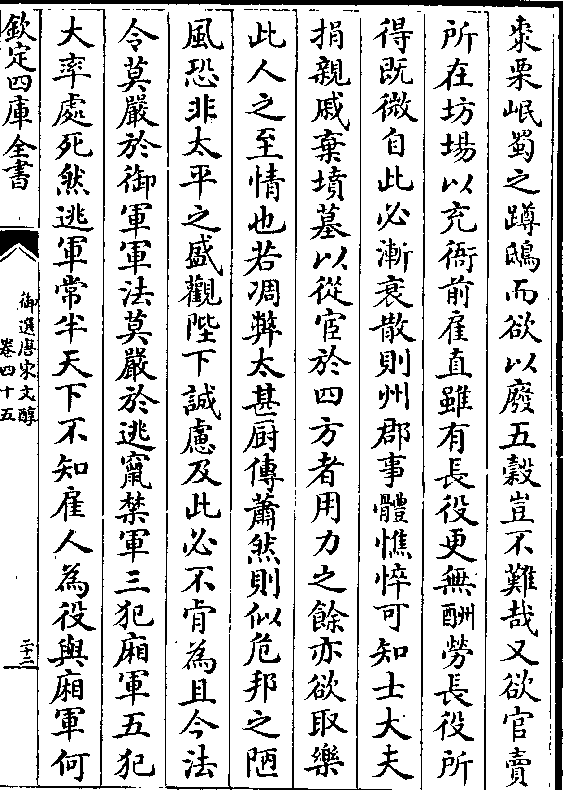 棗栗岷蜀之蹲鴟而欲以廢五穀豈不難哉又欲官賣
所在坊場以充衙前雇直雖有長役更無酬勞長役所
得既微自此必漸衰散則州郡事體憔悴可知士大夫
捐親戚棄墳墓以從宦於四方者用力之餘亦欲取樂
此人之至情也若凋弊太甚厨傳蕭然則似危邦之陋
風恐非太平之盛觀陛下誠慮及此必不肯為且今法
令莫嚴於御軍軍法莫嚴於逃竄禁軍三犯廂軍五犯
大率處死然逃軍常半天下不知雇人為役與廂軍何
欽定四庫全書
御選唐宋文醇
卷四十五
二十二